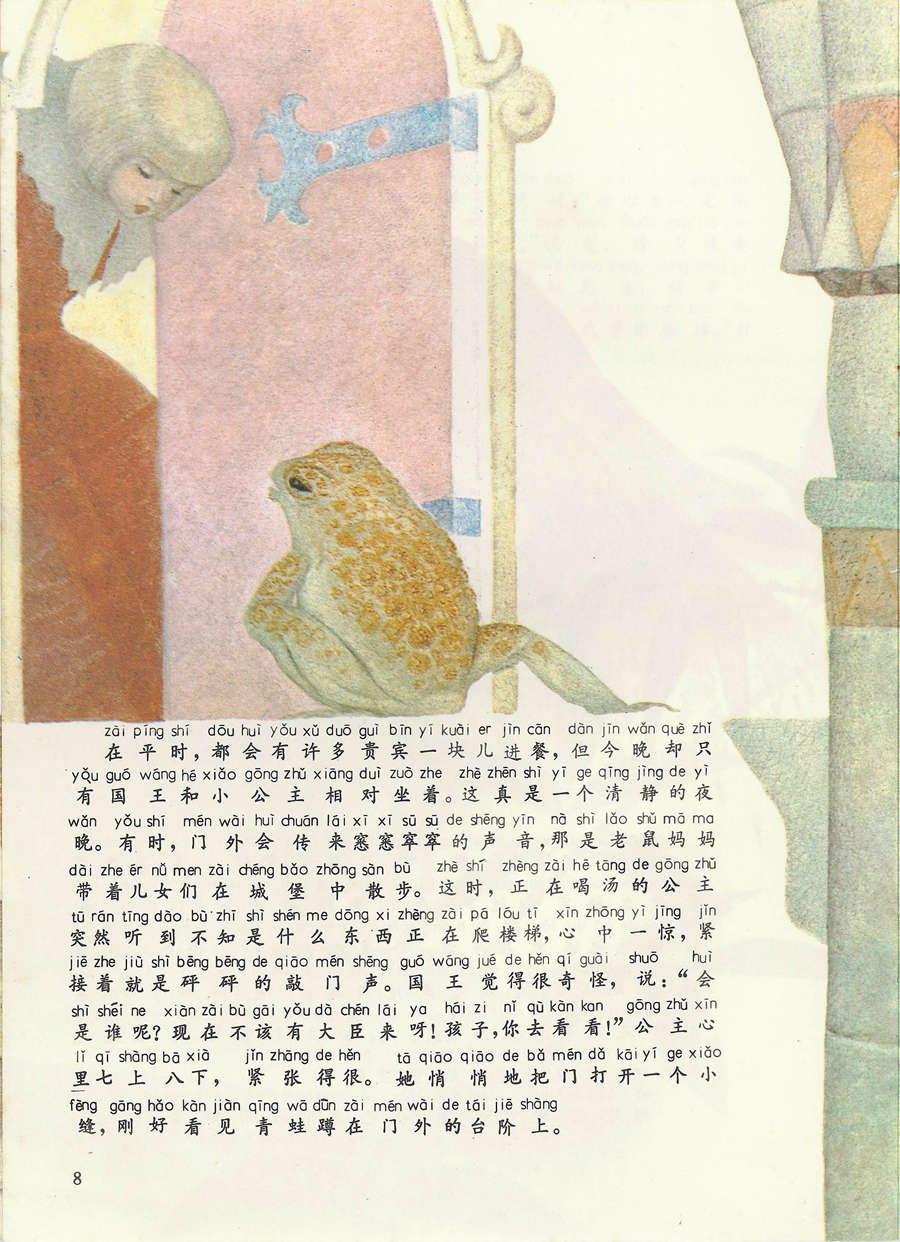 zài píng shí dōu huì yǒu xǔ duō guì bīn yí kuài er jìn cān dàn jīn wǎn què zhǐ
在平时，都会有许多贵宾一块儿进餐，但今晚却只
yǒu guó wáng hé xiǎo gōng zhǔ xiāng duì zuò zhe zhè zhēn shì yī ge qīng jìng de yì
有国王和小公主相对坐着。这真是一个清静的夜
wǎn yǒu shí mén wài huì chuán lái xī xī sū sū de shēng yīn nà shì lǎo shǔ mā ma
晚。有时，门外会传来窸窸窣窣的声音，那是老鼠妈妈
dài zhe ér nǚ men zài chéng bǎo zhōng sàn bù zhè shí zhèng zài hē tāng de gōng zhǔ
带着儿女们在城堡中散步。这时，正在喝汤的公主
tū rán tīng dào bù zhī shì shén me dōng xi zhèng zài pá lóu tī xīn zhōng yì jīng jǐn
突然听到不知是什么东西正在爬楼梯，心中一惊，紧
jiē zhe jiù shì bēng bēng de qiāo mén shēng guó wáng jué de hěn qí guài shuō huì
接着就是砰砰的敲门声。国王觉得很奇怪，说：“会
shì shéi ne xiàn zài bù gāi yǒu dà chén lái ya hái zi nǐ qù kàn kan gōng zhǔ xīn
是谁呢？现在不该有大臣来呀！孩子，你去看看！”公主心
lǐ qī shàng bā xià jǐn zhāng de hěn tā qiāo qiāo de bǎ mén dǎ kāi yí ge xiǎo
里七上八下，紧张得很。她悄悄地把门打开一个小
fèng gāng hǎo kàn jiàn qīng wā dūn zài mén wài de tái jiē shàng
缝，刚好看见青蛙蹲在门外的台阶上。
8